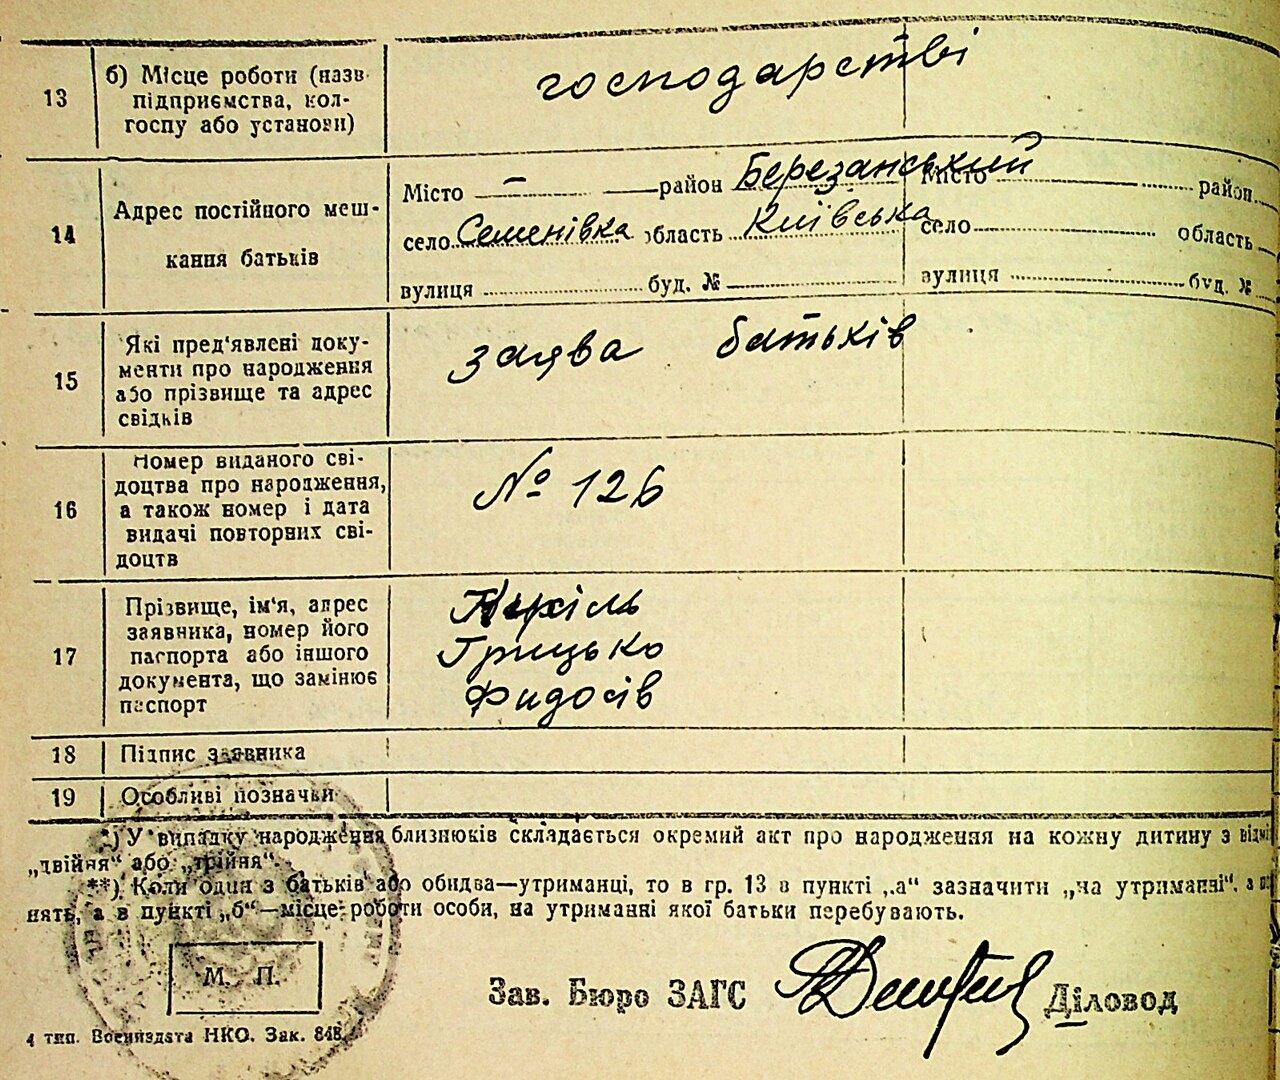 13
б) Місце роботи (назв
підприємства, кол-
госпу або установи)
господарстві
14
Адрес постійного меш-
кання батьків
Місто – район Березанський
село Семенівка область Київська
вулиця буд. №
Місто район
село область
вулиця буд. №
15
Які пред'явлені доку-
менти про народження
або прізвище та адрес
свідків
заява батьків
16
Номер виданого сві-
доцтва про народження,
а також номер і дата
видачі повторних сві-
доцтв
№ 126
17
Прізвище, ім'я, адрес
заявника, номер його
паспорта або іншого
документа, що замінює
паспорт
Грицько
Фидосів
18
Підпис заявника
19
Особливі позначки
*) У випадку народження близнюків складається окремий акт про народження на кожну дитину з відмі
„двійня" або „трійня".
**) Коли один з батьків або обидва—утриманці, то в гр. 13 в пункті „а" зазначити „на утриманні", а
нять, а в пункті „б"—місце роботи особи, на утриманні якої батьки перебувають.
М. П.
Зав. Бюро ЗАГС
Діловод
4 тип. Воениздата НКО. Зак. 848.